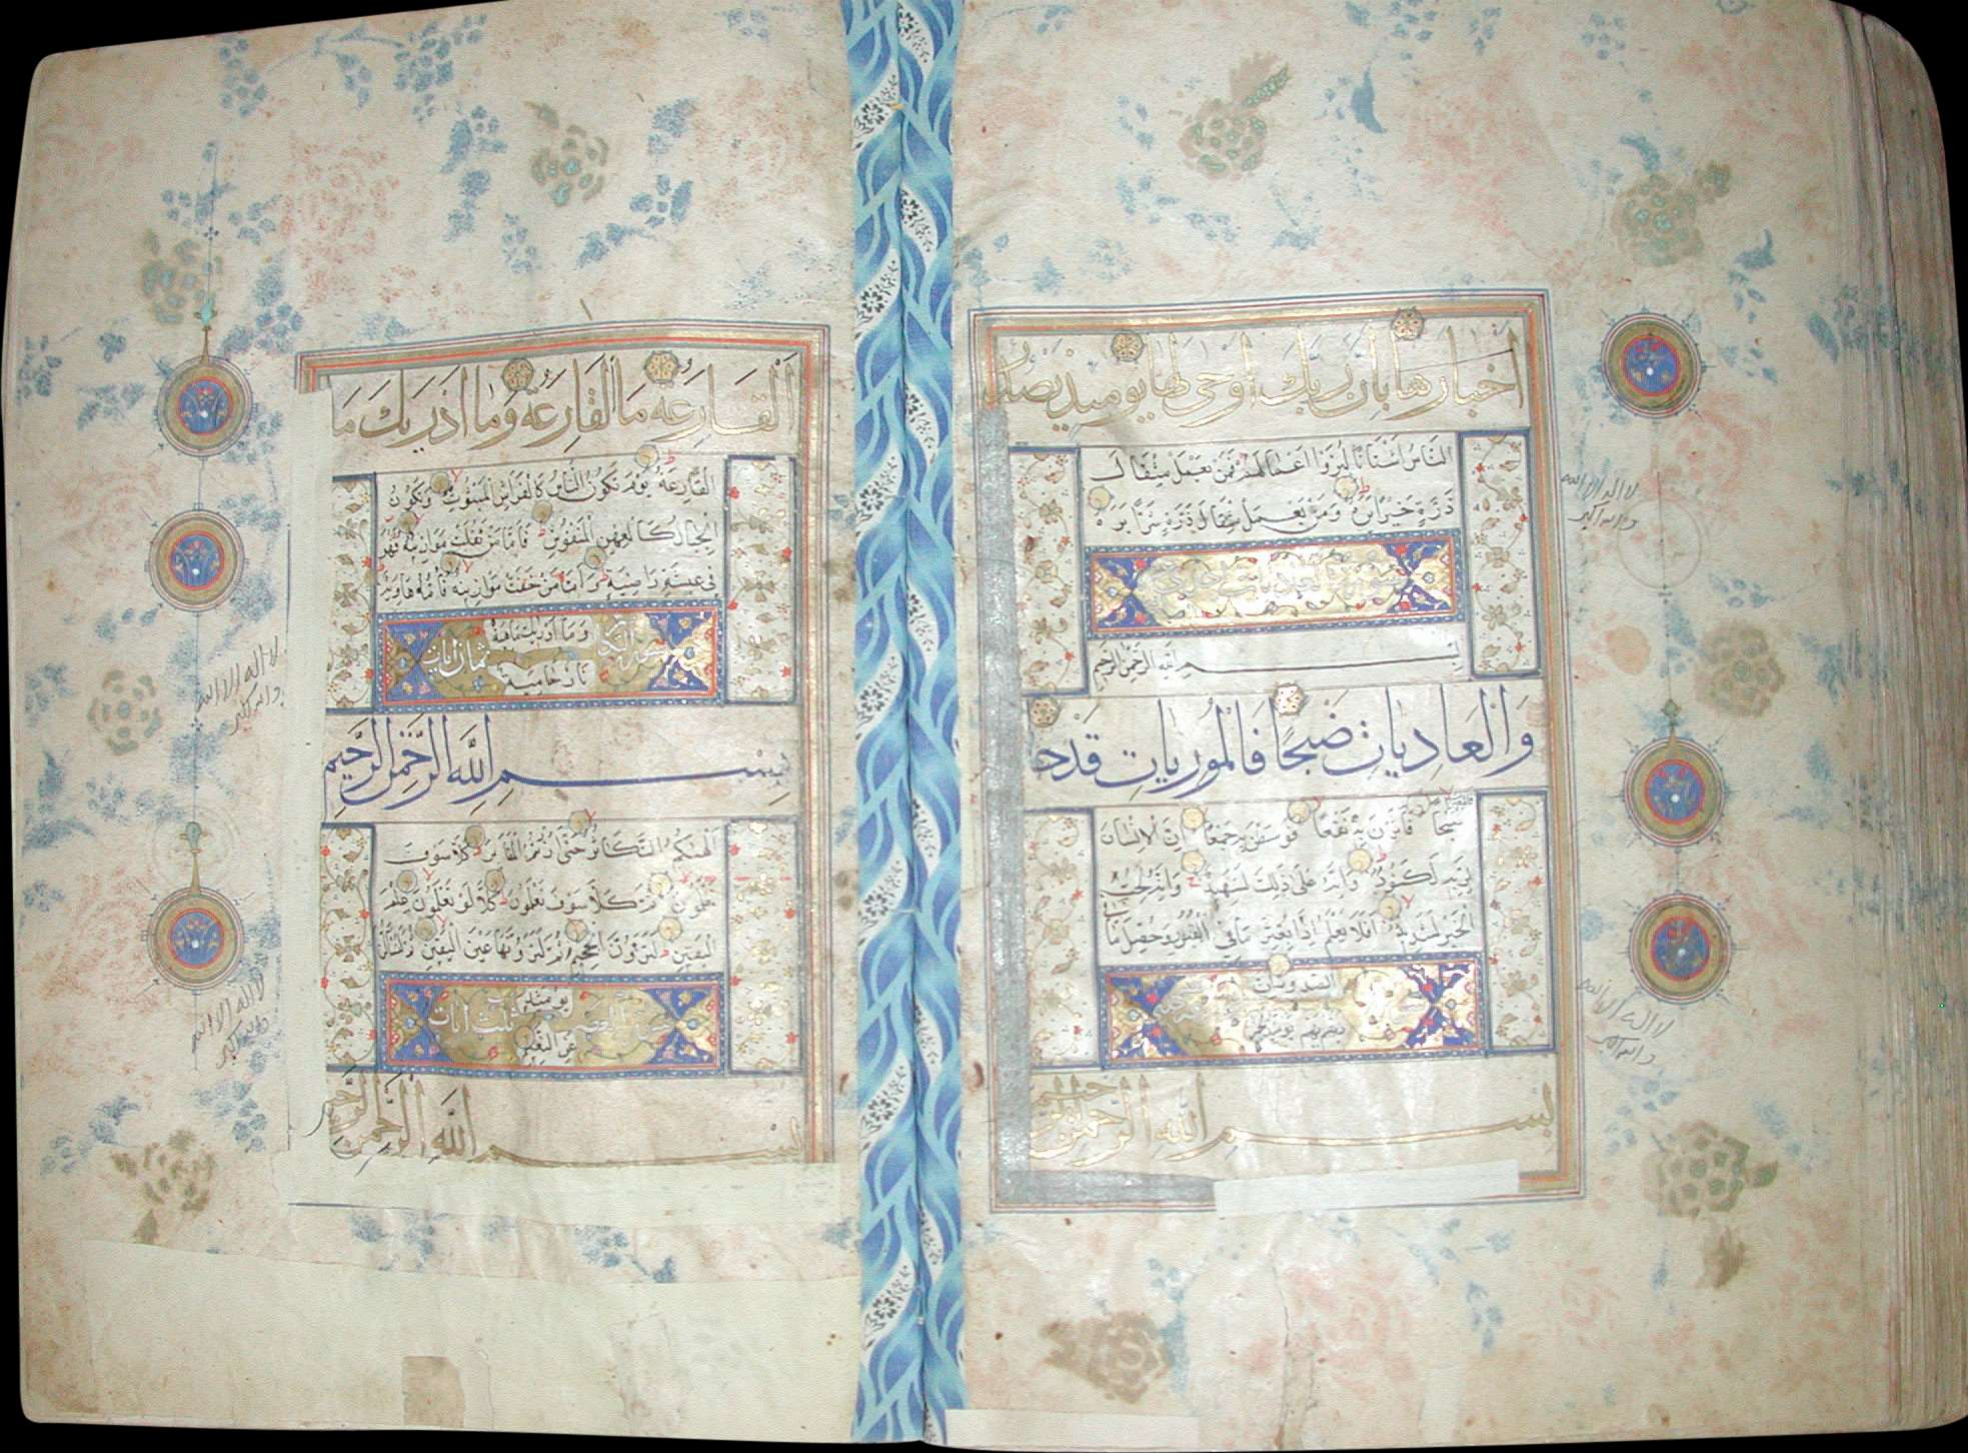 اخبارها بان ربك اوحى لها يومئذ يصدر
الناس اشتاتا ليروا اعمالهم فمن يعمل مثقال
ذرة خيرا يره ومن يعمل مثقال ذرة شرا يره
سورة العاديات
بسم الله الرحمن الرحيم
والعاديات ضبحا فالموريات قدحا
فالمغيرات
صبحا فاثرن به نقعا فوسطن به جمعا ان الانسان
لربه لكنود وانه على ذلك لشهيد وانه لحب
الخير لشديد افلا يعلم اذا بعثر ما في القبور وحصل ما
في الصدور ان
ربهم بهم يومئذ لخبير
بسم الله الرحمن الرحيم
لا اله الا الله
والله اكبر
لا اله الا الله
والله اكبر
القارعة ما القارعة وما ادريك ما
القارعة يوم يكون الناس كالفراش المبثوث وتكون
الجبال كالعهن المنفوش فاما من ثقلت موازينه فهو
في عيشة راضية واما من خفت موازينه فامه هاوية
وما ادريك ماهيه
سورة التكاثر ثمان ايات
نار حامية
بسم الله الرحمن الرحيم
الهيكم التكاثر حتى زرتم المقابر كلا سوف
تعلمون ثم كلا سوف تعلمون كلا لو تعلمون علم
اليقين لترون الجحيم ثم لترونها عين اليقين ثم لتسئلن
يومئذ
سورة العصر ثلث ايات
عن النعيم
بسم الله الرحمن الرحيم
لا اله الا الله
والله اكبر
لا اله الا الله
والله اكبر